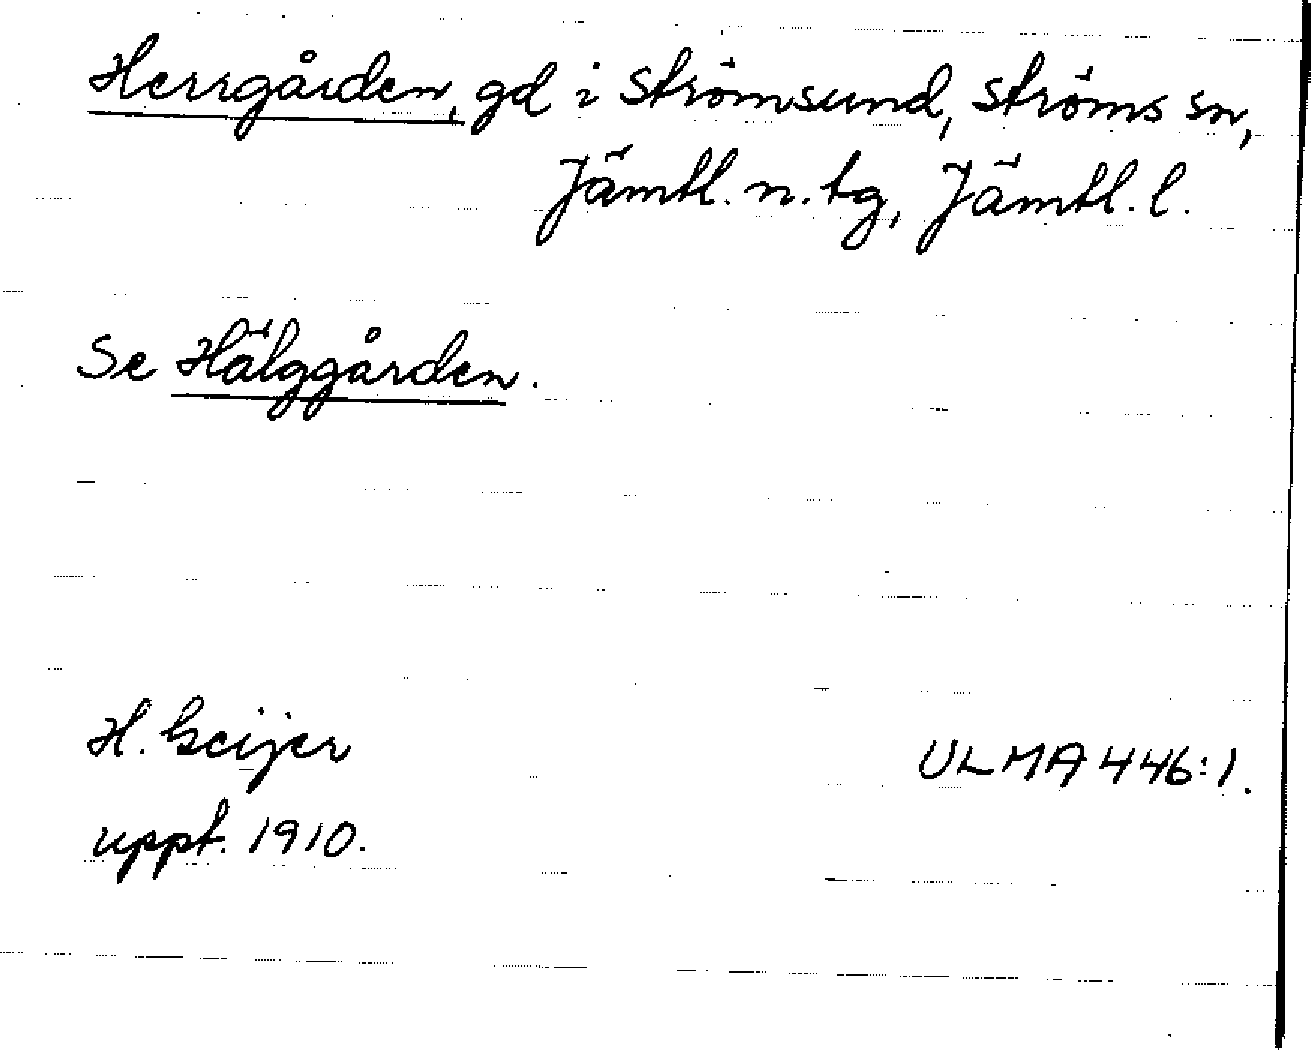 Herrgården, gd i Strömsund, Ströms sn,
Jämtl. n. tg, Jämtl. l.
Se Hälggården.
H. Geijer
uppt. 1910.
ULMA 446:1.